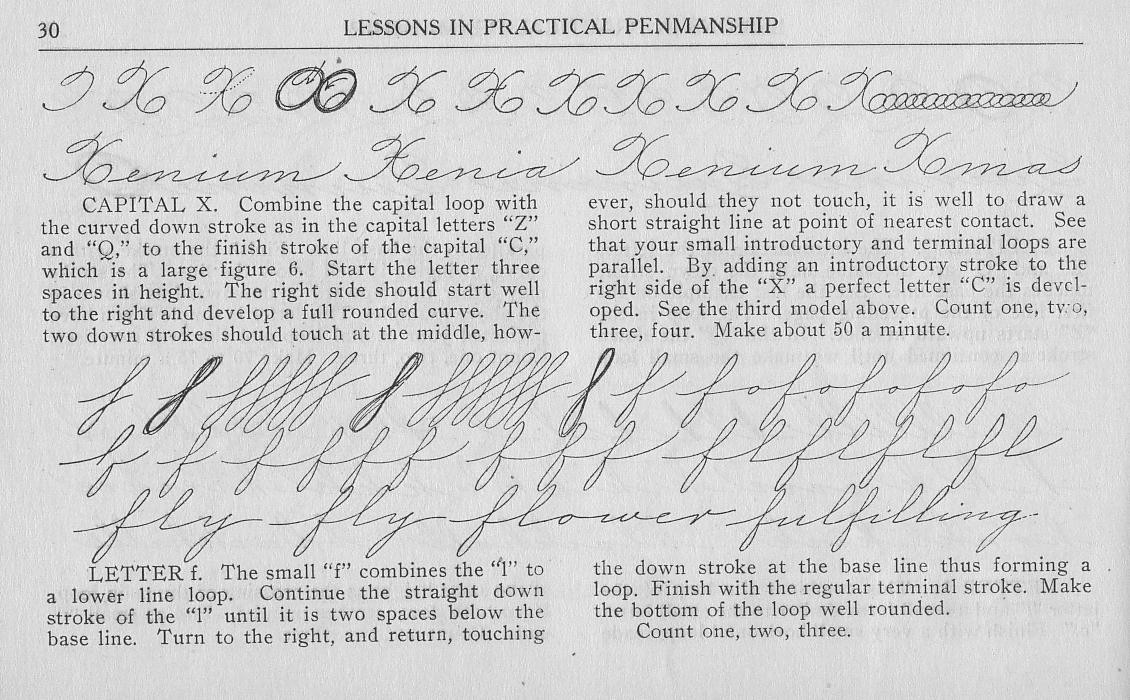 30
LESSONS IN PRACTICAL PENMANSHIP
X X X X X X X X X X
Xenium Xenia Xenium Xmas
CAPITAL X. Combine the capital loop with
the curved down stroke as in the capital letters “Z”
and “Q,” to the finish stroke of the capital “C,”
which is a large figure 6. Start the letter three
spaces in height. The right side should start well
to the right and develop a full rounded curve. The
two down strokes should touch at the middle, how-
ever, should they not touch, it is well to draw a
short straight line at point of nearest contact. See
that your small introductory and terminal loops are
parallel. By adding an introductory stroke to the
right side of the “X” a perfect letter “C” is devel-
oped. See the third model above. Count one, two,
three, four. Make about 50 a minute.
f f f f f fofofofofo
f f ffff fff flflflfl
fly fly flower fulfilling
LETTER f. The small “f” combines the “l” to
a lower line loop. Continue the straight down
stroke of the “l” until it is two spaces below the
base line. Turn to the right, and return, touching
the down stroke at the base line thus forming a
loop. Finish with the regular terminal stroke. Make
the bottom of the loop well rounded.
Count one, two, three.